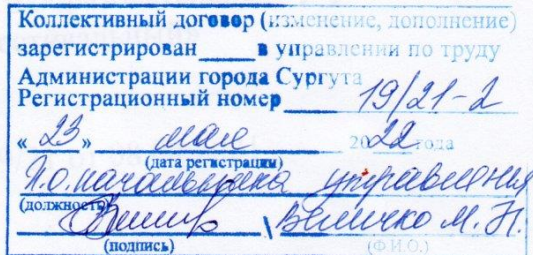 Коллективный договор (изменение, дополнение)
зарегистрирован ____ в управлении по труду
Администрации города Сургута
Регистрационный номер 19/21-2
« 23 » мая 2022 года
(дата регистрации)
И.о. начальника управления
(должность)
\ Величко М. Н.
(подпись) (Ф.И.О.)